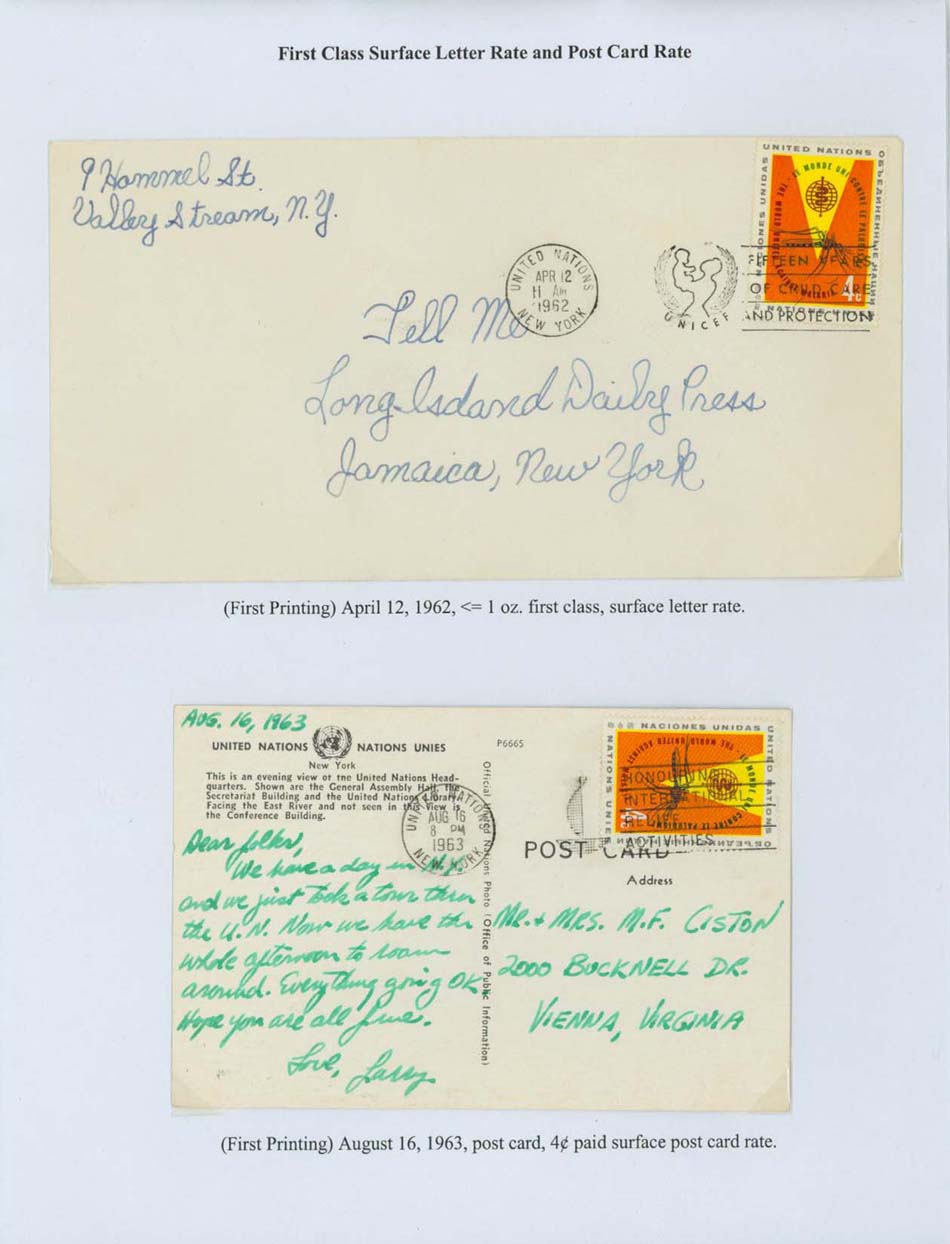 First Class Surface Letter Rate and Post Card Rate
9 Hommel St.
Valley Stream, N.Y.
UNITED NATIONS
ОБЪЕДИНЕННЫЕ НАЦИИ
NACIONES UNIDAS
THE WORLD UNITED AGAINST MALARIA - LE MONDE UNI CONTRE LE PALUDISME
4c
UNITED NATIONS
APR 12
11 AM
1962
NEW YORK
UNICEF
FIFTEEN YEARS
OF CHILD CARE
AND PROTECTION
Tell Me
Long Island Daily Press
Jamaica, New York
(First Printing) April 12, 1962, <= 1 oz. first class, surface letter rate.
AUG. 16, 1963
UNITED NATIONS NATIONS UNIES
New York
P6665
This is an evening view of the United Nations Head-
quarters. Shown are the General Assembly Hall, the
Secretariat Building and the United Nations Library.
Facing the East River and not seen in this view is
the Conference Building.
UNITED NATIONS
AUG 16
8 PM
1963
NEW YORK
Dear folks,
We have a day in N.Y.
and we just took a tour thru
the U.N. Now we have the
whole afternoon to roam
around. Everything going OK
Hope you are all fine.
Love, Larry
Official United Nations Photo (Office of Public Information)
NACIONES UNIDAS
UNITED NATIONS
ОБЪЕДИНЕННЫЕ НАЦИИ
NATIONS UNIES
THE WORLD UNITED AGAINST MALARIA - LE MONDE UNI CONTRE LE PALUDISME
4c
HONOURING
INTERNATIONAL
RELIEF
ACTIVITIES
POST CARD
Address
MR. + MRS. M.F. CISTON
2000 BUCKNELL DR.
VIENNA, VIRGINIA
(First Printing) August 16, 1963, post card, 4¢ paid surface post card rate.